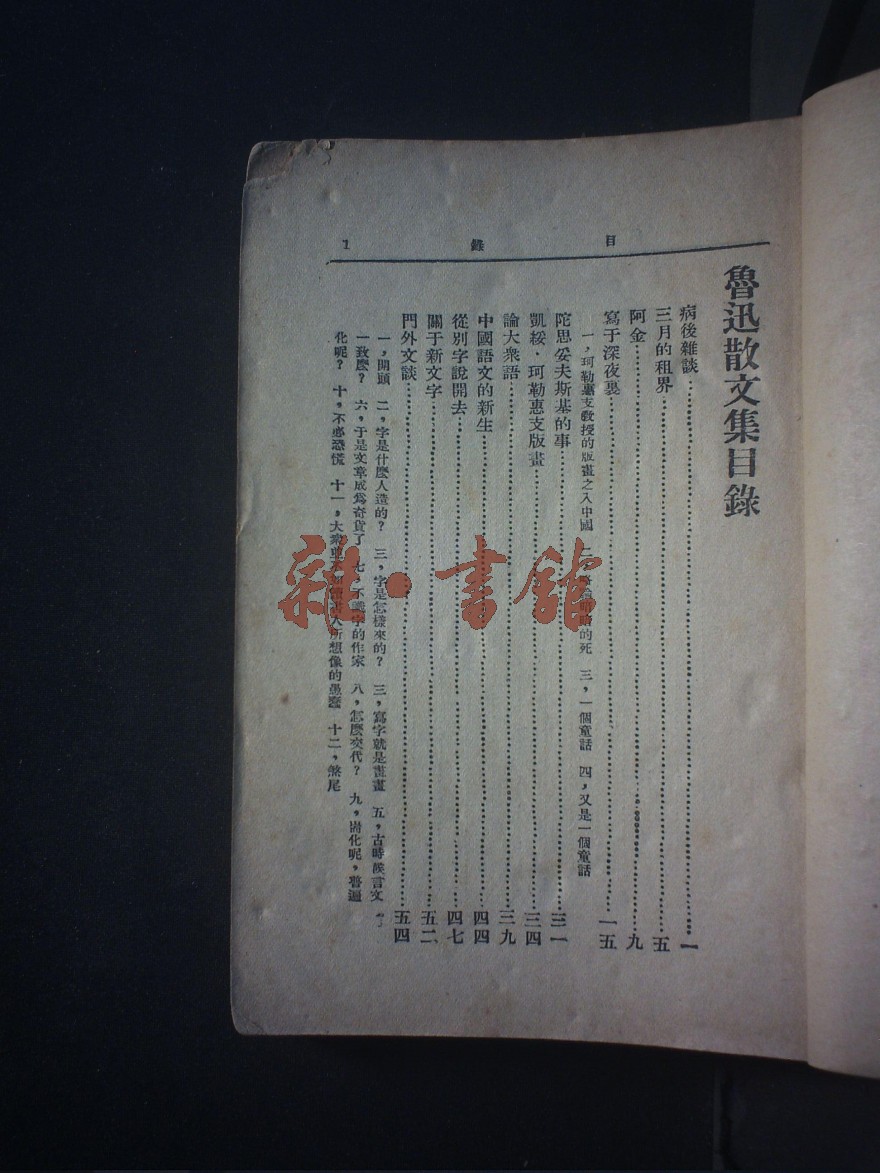 目錄 1
魯迅散文集目錄
病後雜談 一
三月的租界 五
阿金 九
寫于深夜裏 一五
一，珂勒惠支敎授的版畫之入中國 二 的死 三，一個童話 四，又是一個童話
陀思妥夫斯基的事 三一
凱綏·珂勒惠支版畫 三四
論大衆語 三九
中國語文的新生 四四
從別字說開去 四七
關于新文字 五二
門外文談 五四
一，開頭 二，字是什麼人造的？ 三，字是怎樣來的？ 三，寫字就是畫畫 五，古時候言文
一致麼？ 六，于是文章成爲奇貨了 七 不識字的作家 八，怎麼交代？ 九，耑化呢，普遍
化呢？ 十，不必恐慌 十一，大衆 人所想像的愚蠢 十二，煞尾
雜·書館